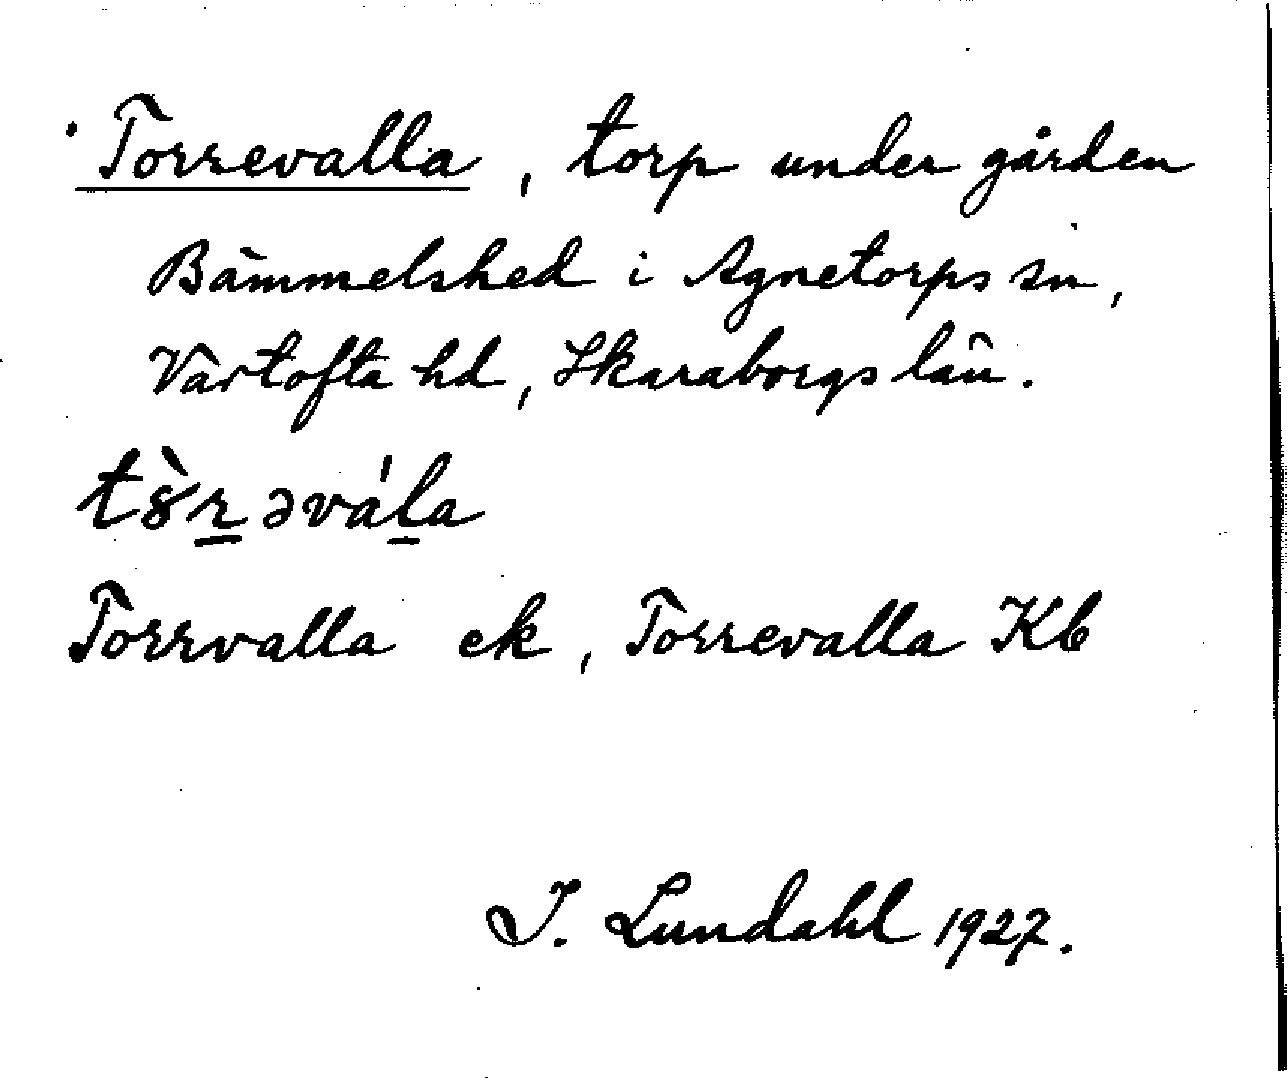 Torrevalla, torp under gården
Bämmelshed i Agnetorps sn,
Vartofta hd, Skaraborgs län.
tȣ̀r̲əvál̲a
Torrvalla ek, Torrevalla Kb
I. Lundahl 1927.